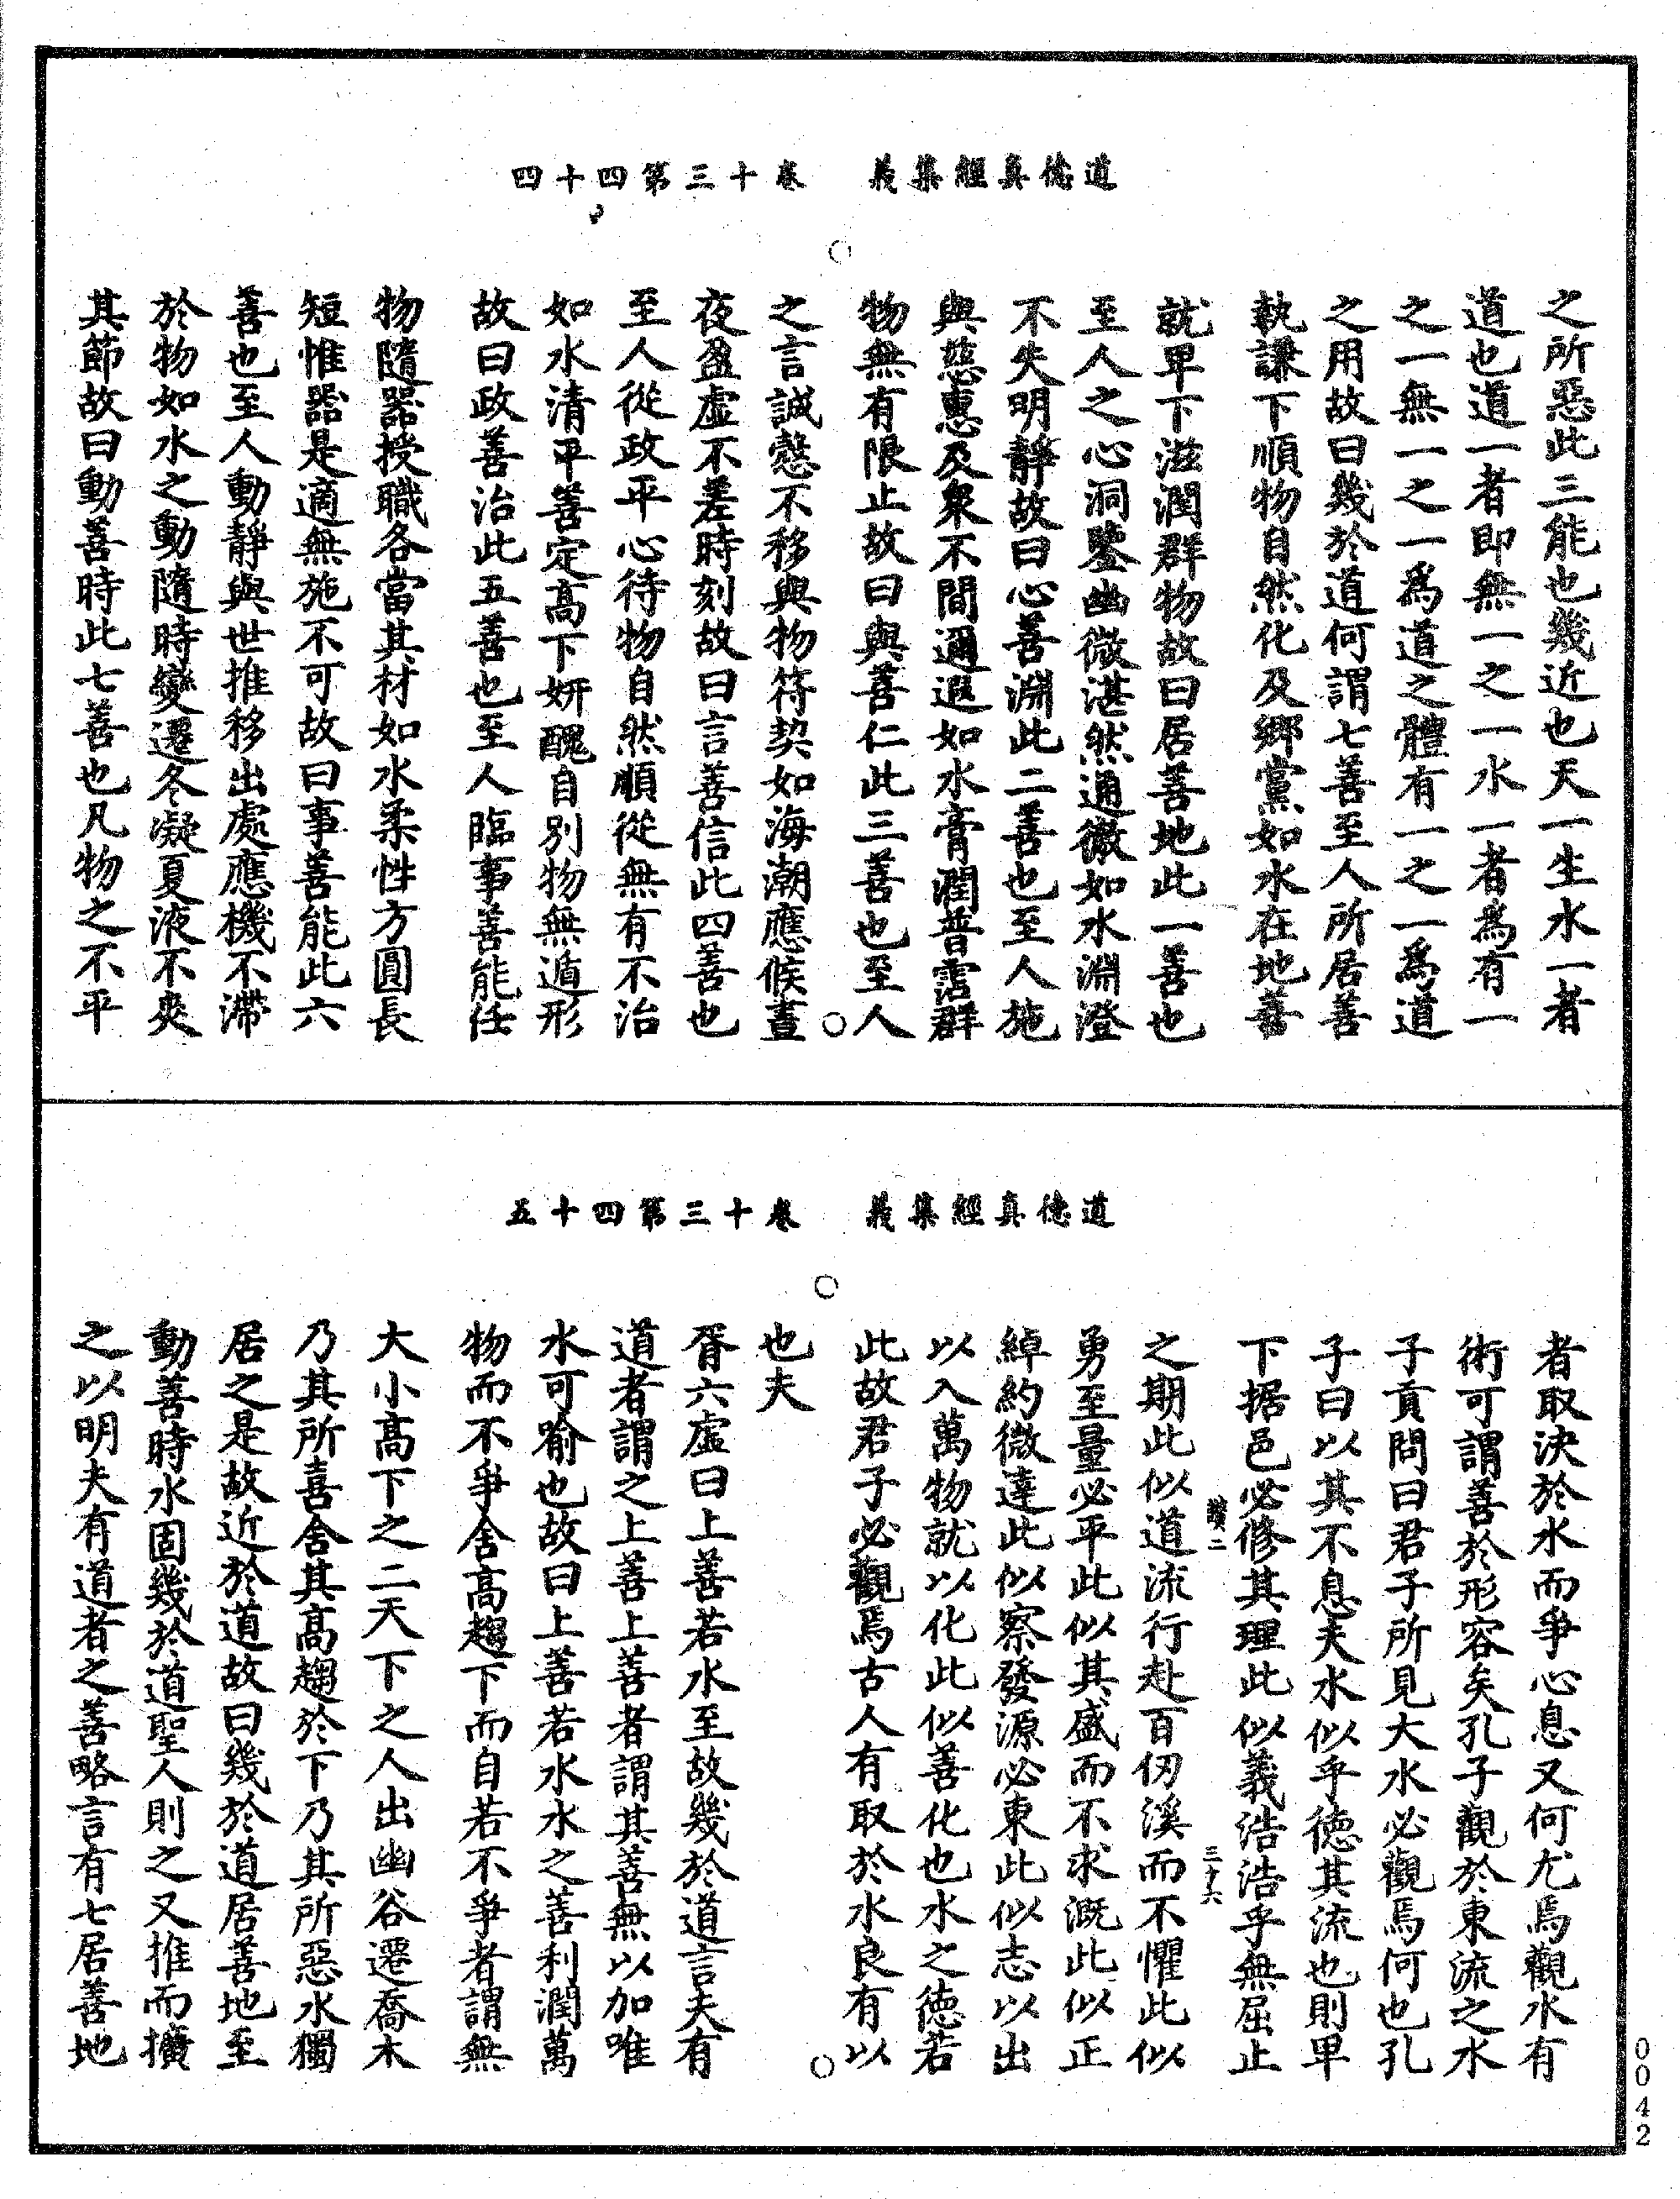 道德真經集義　卷十三第四十四
之所惡此三能也幾近也天一生水一者
道也道一者即無一之一水一者為有一
之一無一之一為道之體有一之一為道
之用故曰幾於道何謂七善至人所居善
執謙下順物自然化及鄉黨如水在地善
就卑下滋潤群物故曰居善地此一善也
至人之心洞鑒幽微湛然通徹如水淵澄
不失明靜故曰心善淵此二善也至人施
與慈惠及衆不間邇遐如水膏潤普霑群
物無有限止故曰與善仁此三善也至人
之言誠愨不移與物符契如海潮應候晝
夜盈虛不差時刻故曰言善信此四善也
至人從政平心待物自然順從無有不治
如水清平善定高下妍醜自別物無遁形
故曰政善治此五善也至人臨事善能任
物隨器授職各當其材如水柔性方圓長
短惟器是適無施不可故曰事善能此六
善也至人動靜與世推移出處應機不滯
於物如水之動隨時變遷冬凝夏液不爽
其節故曰動善時此七善也凡物之不平
道德真經集義　卷十三第四十五
者取決於水而爭心息又何尤焉觀水有
術可謂善於形容矣孔子觀於東流之水
子貢問曰君子所見大水必觀焉何也孔
子曰以其不息夫水似乎德其流也則卑
下据邑必修其理此似義浩浩乎無屈止
之期此似道流行赴百仞溪而不懼此似
勇至量必平此似其盛而不求溉此似正
綽約微達此似察發源必東此似志以出
以入萬物就以化此似善化也水之德若
此故君子必觀焉古人有取於水良有以
也夫
胥六虛曰上善若水至故幾於道言夫有
道者謂之上善上善者謂其善無以加唯
水可喻也故曰上善若水水之善利潤萬
物而不爭舍高趨下而自若不爭者謂無
大小高下之二天下之人出幽谷遷喬木
乃其所喜舍其高趨於下乃其所惡水獨
居之是故近於道故曰幾於道居善地至
動善時水固幾於道聖人則之又推而擴
之以明夫有道者之善略言有七居善地
三十六
0042